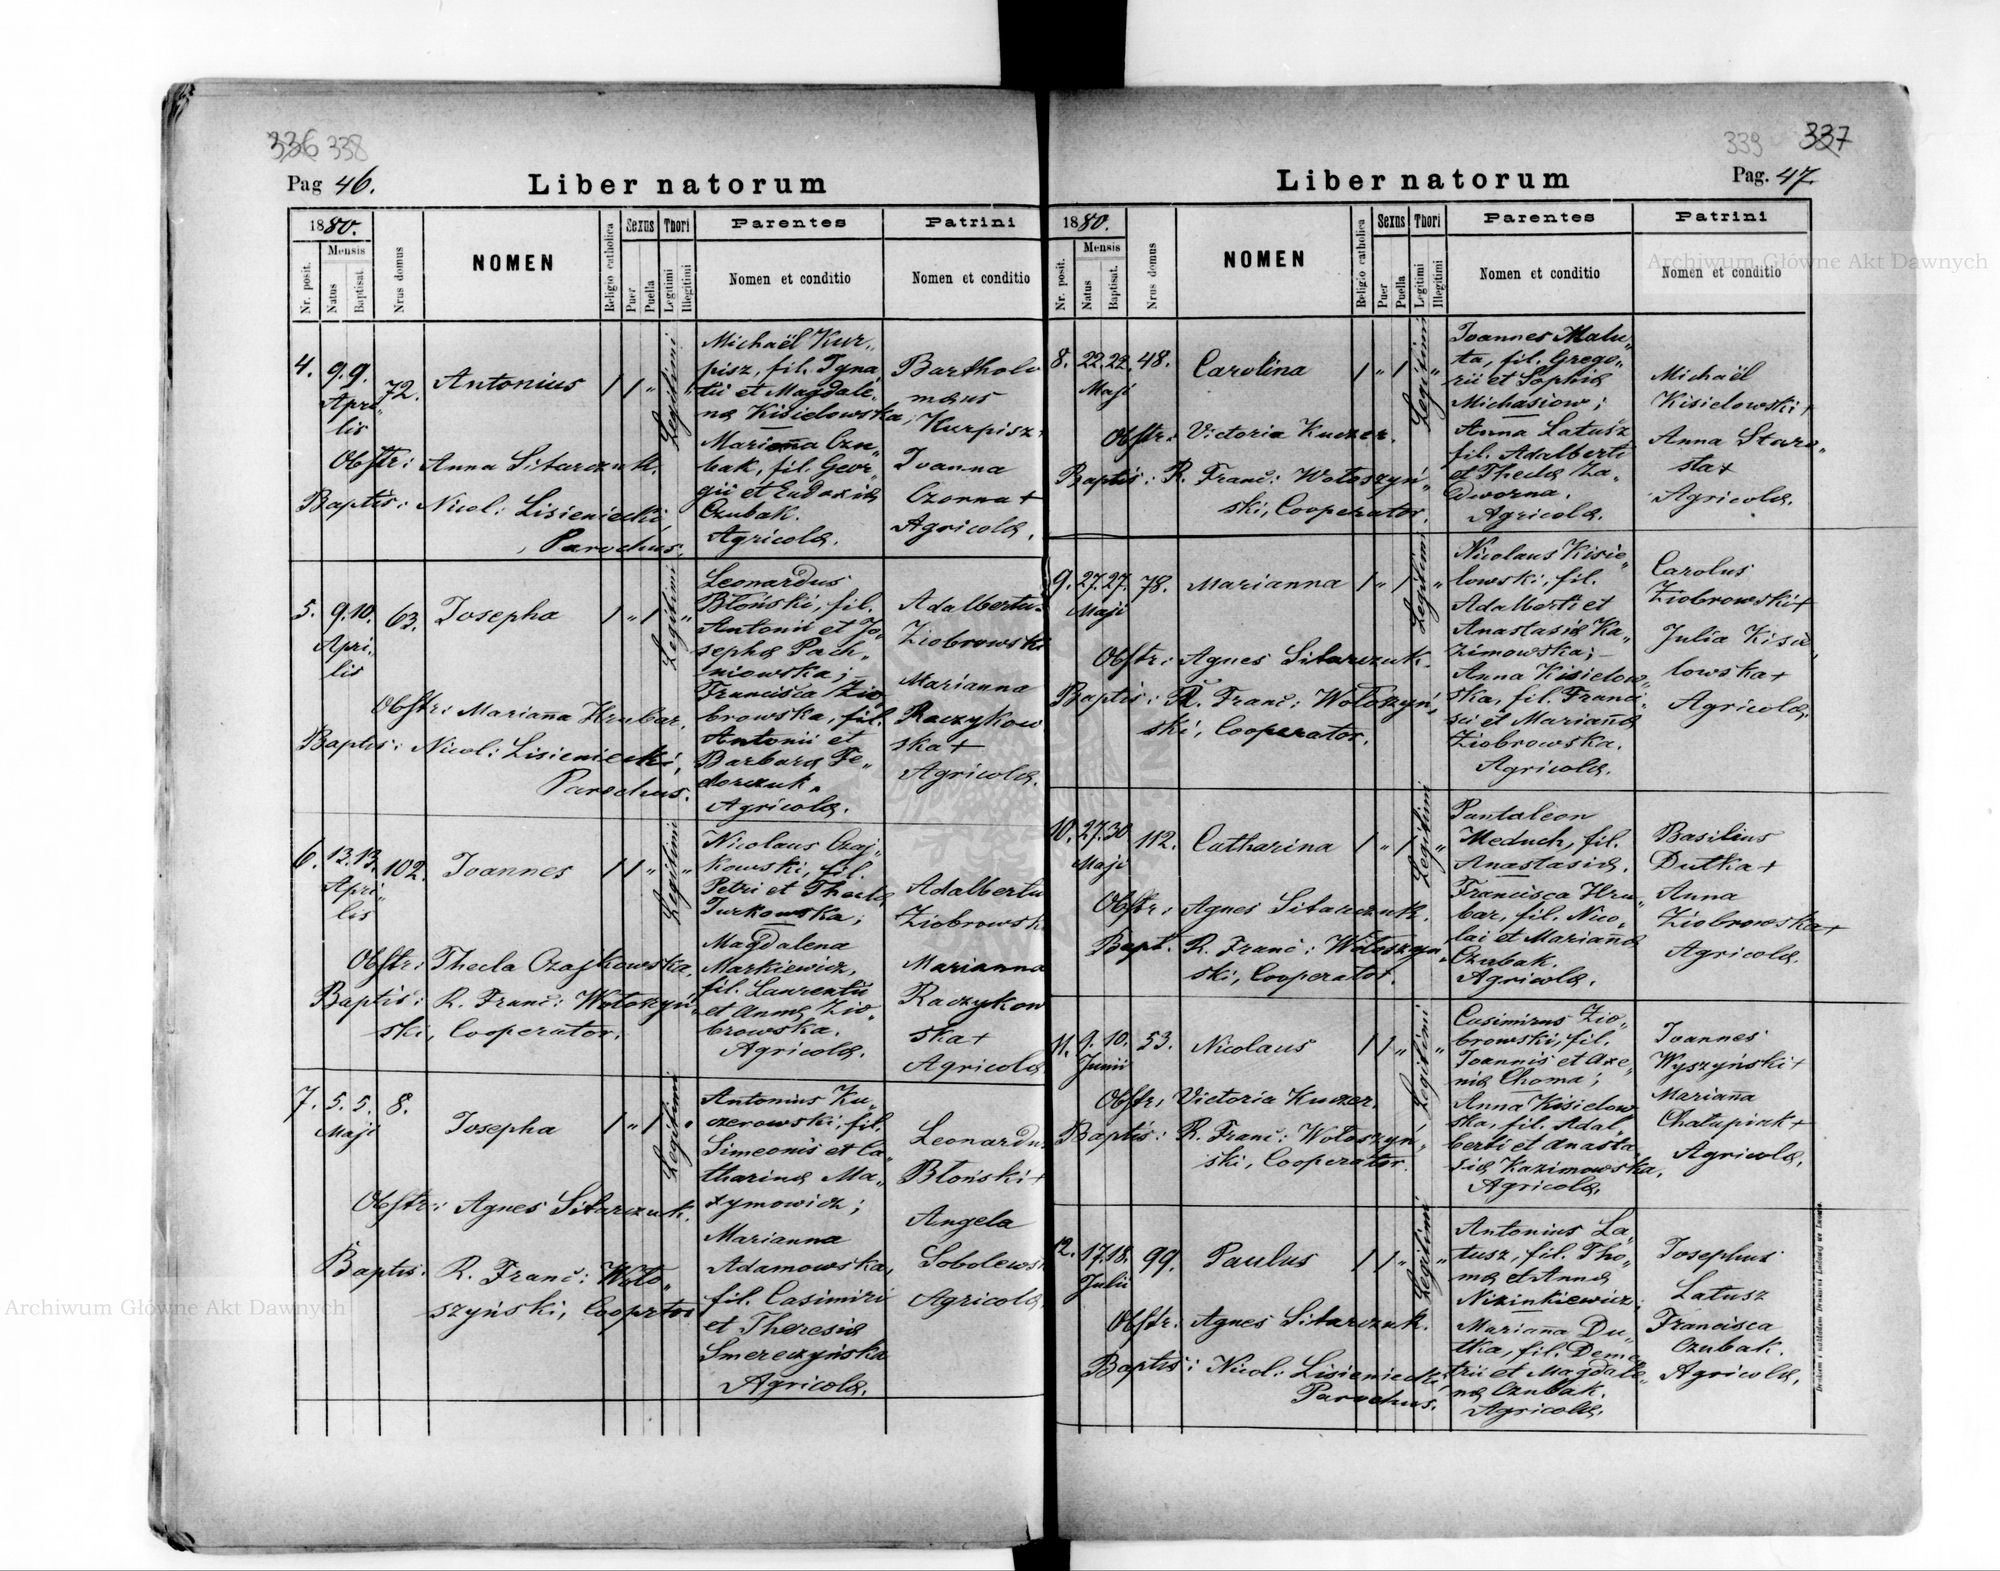 336 338
Pag 46.
Liber natorum
1880.
Mensis
Nr. posit.
Natus
Baptisat.
Nrus domus
NOMEN
Religio catholica
Sexus
Puer
Puella
Thori
Legitimi
Illegitimi
Parentes
Nomen et conditio
Patrini
Nomen et conditio
4. 9. 9. 72. Antonius
Apri„
lis
Legitimi
Obstr: Anna Sitarczuk.
Baptis: Nicol: Lisieniecki,
Parochus.
Michaël Kur„
pisz, fil. Igna„
tii et Magdale„
na Kisielowska;
Marianna Czu„
bak, fil. Geor„
gii et Eudoxia
Czubak.
Agricola.
Bartholo
maeus
Kurpisz+
Joanna
Czorna+
Agricola.
5. 9. 10. 63. Josepha
Apri„
lis
Legitimi
Obstr: Marianna Hrubar.
Baptis: Nicol: Lisieniecki,
Parochus.
Leonardus
Błoński, fil.
Antonii et Jo„
sepha Pach„
niowska;
Francisca Zio„
browska, fil.
Antonii et
Barbara Fe„
dorczuk.
Agricola.
Adalbertu
Ziobrowski
Marianna
Raczykow
ska+
Agricola.
6. 13. 13. 102. Joannes
Apri„
lis
Legitimi
Obstr: Thecla Czajkowska.
Baptis: R. Franc: Wołoszyń„
ski, Cooperator.
Nicolaus Czaj„
kowski, fil.
Petri et Thecla
Turkowska;
Magdalena
Markiewicz,
fil. Laurentii
et Anna Zio„
browska.
Agricola.
Adalbertu
Ziobrowsk
Marianna
Raczykow
ska+
Agricola
7. 5. 5. 8. Josepha
Maji
Legitimi
Obstr: Agnes Sitarczuk.
Baptis: R. Franc: Woło„
szyński, Cooprtor
Antonius Ku„
czerowski, fil.
Simeonis et Ca„
tharina Ma„
xymowicz;
Marianna
Adamowska,
fil. Casimiri
et Theresia
Smereczyńska
Agricola.
Leonardu
Błoński+
Angela
Sobolews
Agricola
339 337
Liber natorum
Pag. 47.
1880.
Mensis
Nr. posit.
Natus
Baptisat.
Nrus domus
NOMEN
Religio catholica
Sexus
Puer
Puella
Thori
Legitimi
Illegitimi
Parentes
Nomen et conditio
Patrini
Nomen et conditio
8. 22. 22. 48. Carolina
Maji
Legitimi
Obstr: Victoria Kuczer.
Baptis: R. Franc: Wołoszyń„
ski, Cooperator.
Joannes Malu„
ta, fil. Grego„
rii et Sophia
Michasiow;
Anna Latusz
fil. Adalberti
et Thecla Za„
dworna.
Agricola.
Michaël
Kisielowski+
Anna Staro„
sta+
Agricola.
9. 27. 27. 78. Marianna
Maji
Legitimi
Obstr: Agnes Sitarczuk.
Baptis: R. Franc: Wołoszyń„
ski, Cooperator.
Nicolaus Kisie„
lowski, fil.
Adalberti et
Anastasia Ka„
zimowska;
Anna Kisielow„
ska, fil. Franci„
sci et Marianna
Ziobrowska.
Agricola.
Carolus
Ziobrowski+
Julia Kisie„
lowska+
Agricola.
10. 27. 30. 112. Catharina
Maji
Legitimi
Obstr: Agnes Sitarczuk.
Bapt. R. Franc: Wołoszyń„
ski, Cooperator.
Pantaleon
Meduch, fil.
Anastasia.
Francisca Hru„
bar, fil. Nico„
lai et Marianna
Czubak.
Agricola.
Basilius
Dutka+
Anna
Ziobrowska+
Agricola.
11. 9. 10. 53. Nicolaus
Junii
Legitimi
Obstr: Victoria Kuczer.
Baptis: R. Franc: Wołoszyń„
ski, Cooperator.
Casimirus Zio„
browski, fil.
Joannis et Axe„
nia Choma;
Anna Kisielow„
ska, fil. Adal„
berti et Anasta„
sia Kazimowska.
Agricola.
Joannes
Wyszyński+
Marianna
Chałupiak+
Agricola.
12. 17. 18. 99. Paulus
Julii
Legitimi
Obstr: Agnes Sitarczuk.
Baptis: Nicol: Lisieniecki
Parochus.
Antonius La„
tusz, fil. Tho„
ma et Anna
Nizinkiewicz;
Marianna Du„
tka, fil. Deme„
trii et Magdale„
na Czubak.
Agricola.
Josephus
Latusz
Francisca
Czubak.
Agricola.
Archiwum Główne Akt Dawnych
Archiwum Główne Akt Dawnych